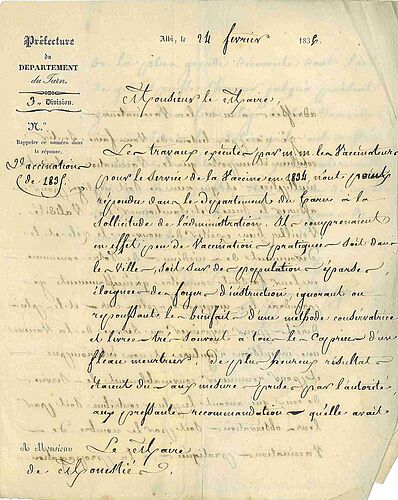 Préfecture
du
DÉPARTEMENT
du Tarn.
3e Division.
N.°
Rappeler ce numéro dans
la réponse.
Vaccinations
de 1835.
Albi, le 24 février 1836.
Monsieur le Maire,
Les travaux exécutés par mm les Vaccinateurs
pour le Service de la Vaccine en 1834 n'ont point
répondu dans le département du Tarn à la
Sollicitude de l'administration. Ils comprenaient
en effet peu de Vaccinations pratiquées soit dans
les Villes, soit sur des populations éparses,
éloignées des foyers d'instruction, ignorant ou
repoussant le bienfait d'une méthode conservatrice
et livrées très souvent à tous les Caprices d'un
fléau meurtrier. De plus heureux résultats
étaient dus aux mesures prises par l'autorité
aux pressantes recommandations qu'elle avait
A Monsieur Le Maire
de Moustié.